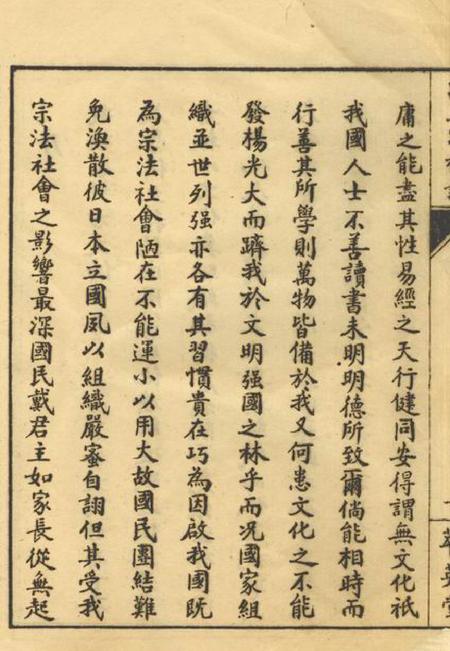 庸之能盡其性易經之天行健同安得謂無文化祇
我國人士不善讀書未明明德所致爾倘能相時而
行善其所學則萬物皆備於我又何患文化之不能
發楊光大而躋我於文明强國之林乎而况國家組
織並世列强亦各有其習慣貴在巧為因啟我國既
為宗法社會陋在不能運小以用大故國民團結難
免渙散彼日本立國夙以組織嚴蜜自詡但其受我
宗法社會之影響最深國民戴君主如家長從無起